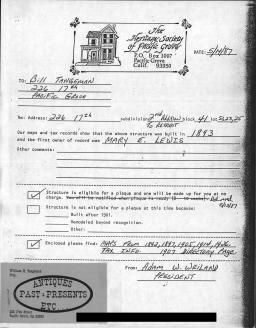 The
Heritage Society
of Pacific Grove
P.O. Box 1007
Pacific Grove
Calif. 93950
DATE: 5/4/87
TO: Bill Tangeman
226 17th
Pacific Grove
Re: Address: 226 17th subdivision 2nd Addn block 41 lot
to Retreat
Our maps and tax records show that the above structure was built in 1893
and the first owner of record was MARY E. LEWIS
Other comments:
Structure is eligible for a plaque and one will be made up for you at no
charge. You will be notified when plaque is ready
Structure is not eligible for a plaque at this time because:
Built after 1901.
Remodeled beyond recognition.
Other:
Enclosed please find: MAPS FROM 1892, 1897, 1905, 1914, 1926.
TAX INFO. 1907 DIRECTORY PAGE.
From: Adam W. Weiland
PRESIDENT
ANTIQUES
PAST - PRESENTS
ETC